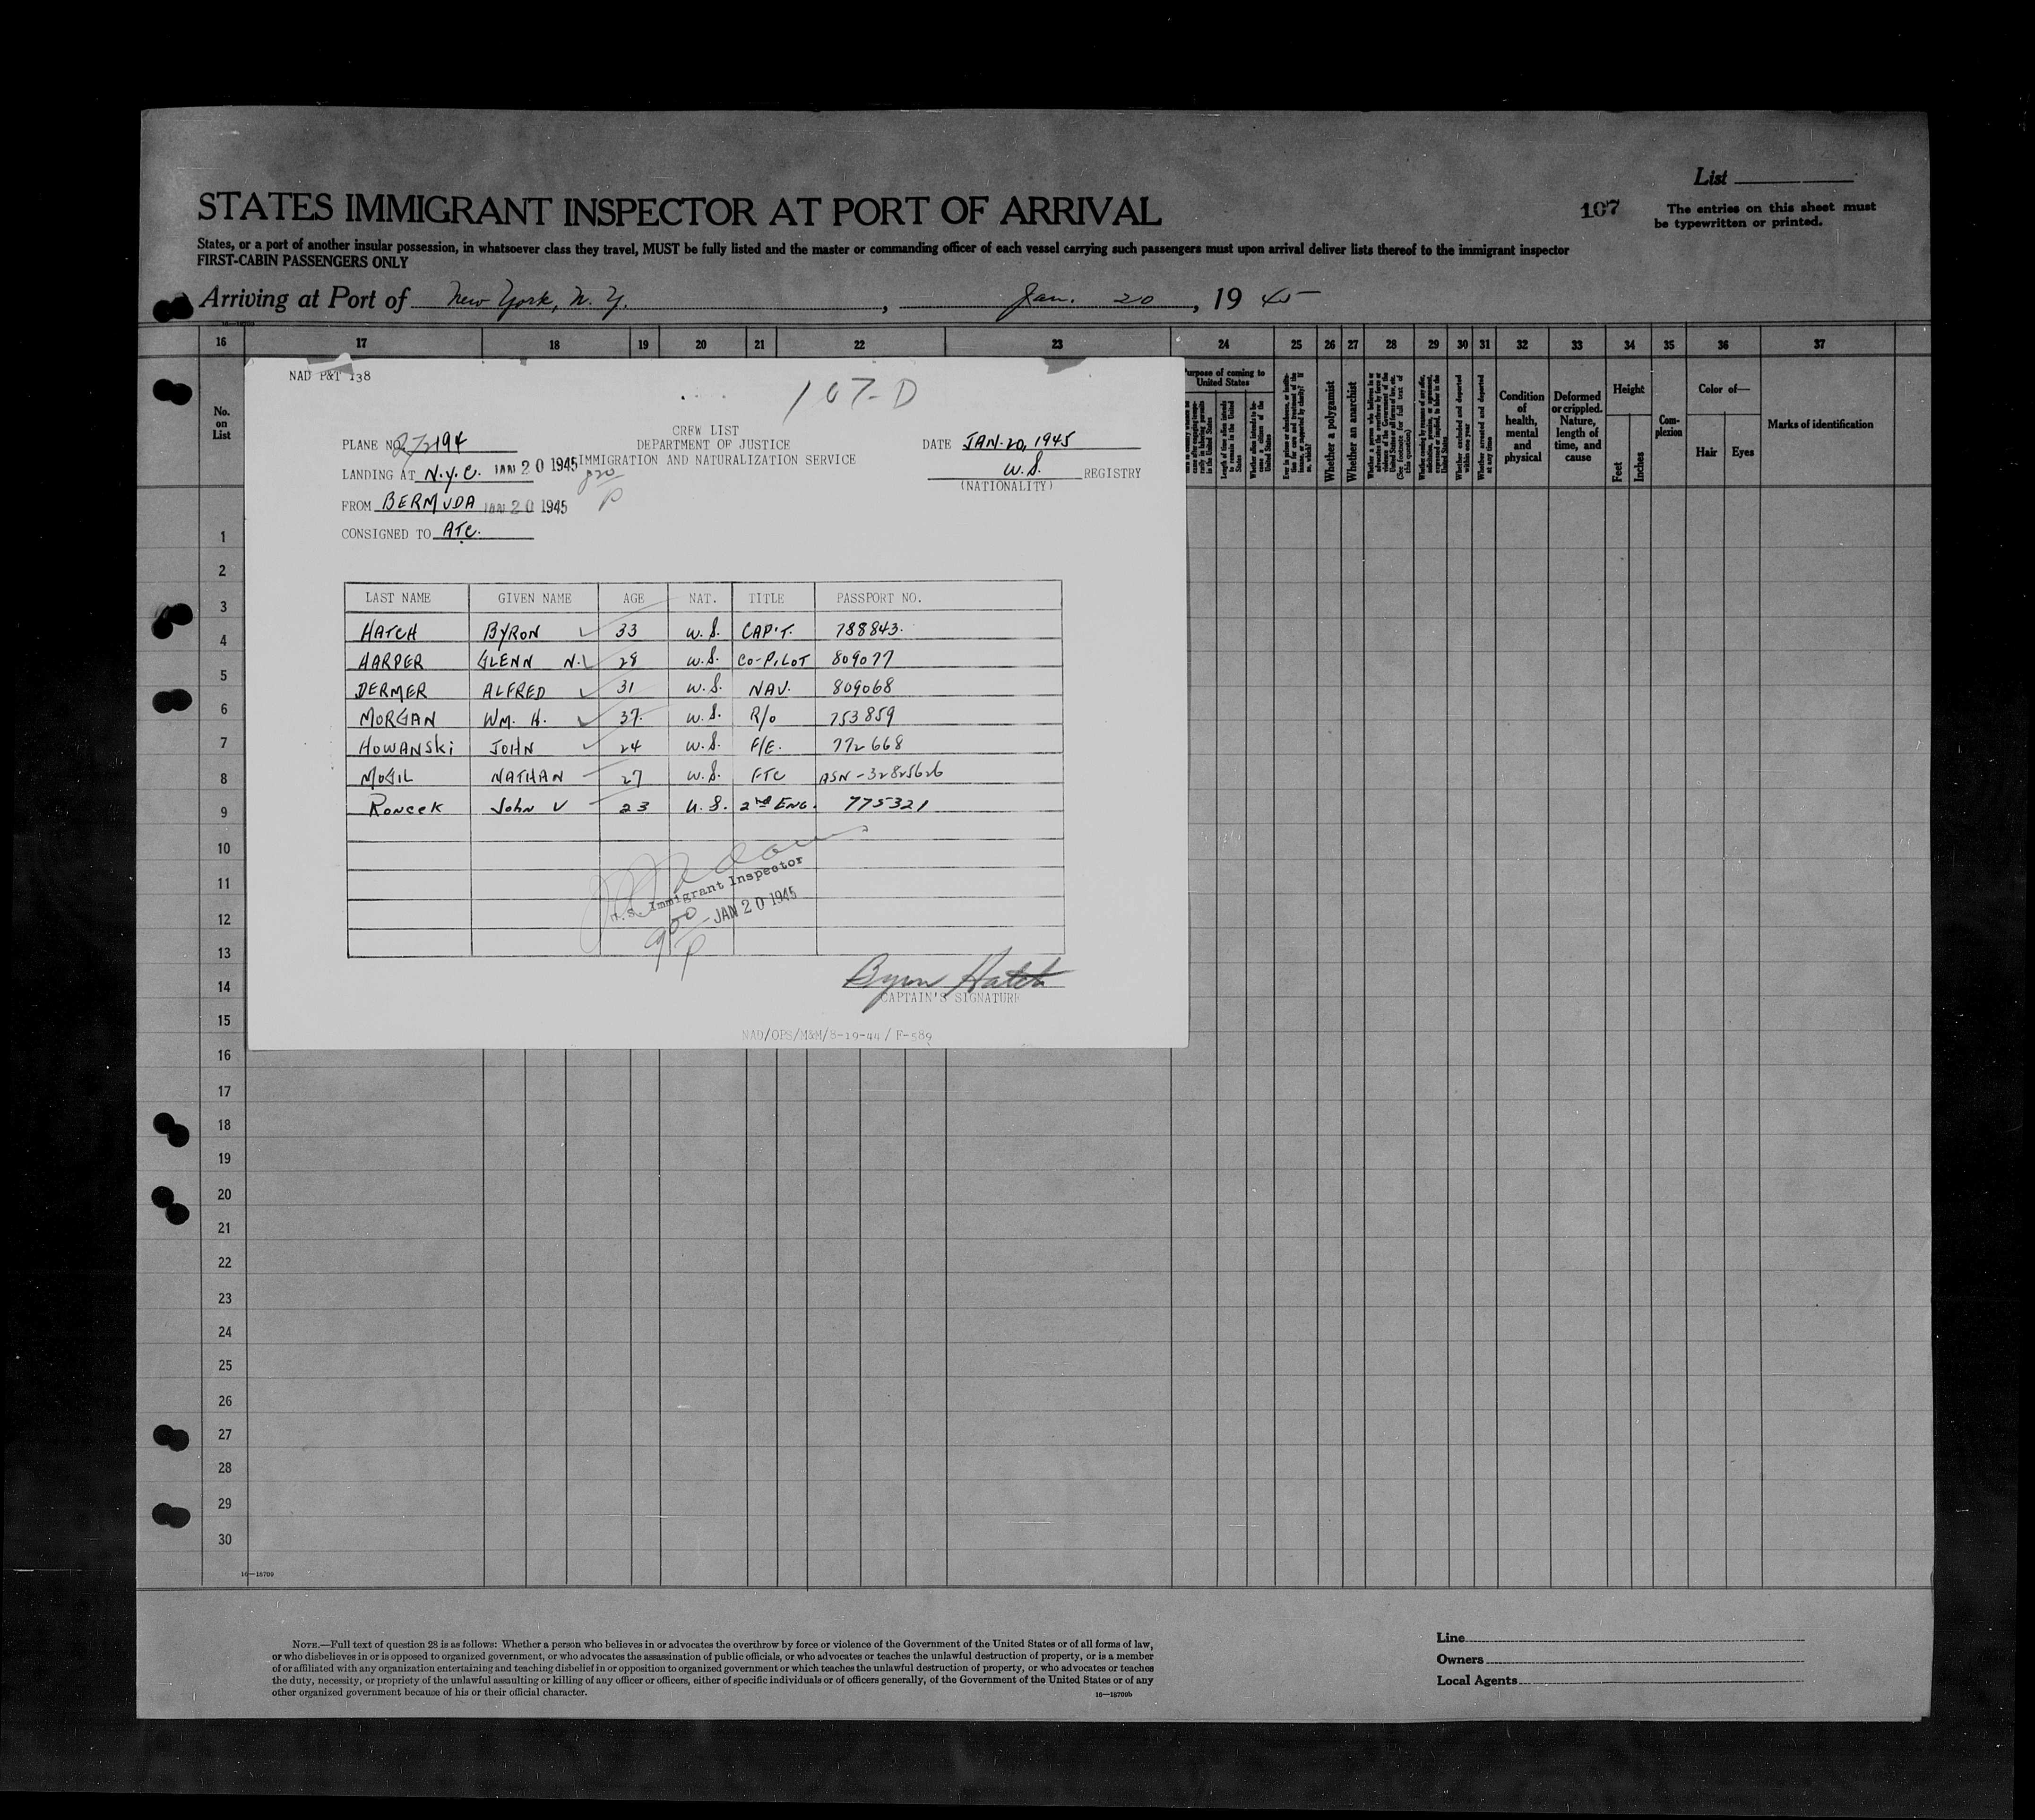 List
STATES IMMIGRANT INSPECTOR AT PORT OF ARRIVAL
107
The entries on this sheet must
be typewritten or printed.
States, or a port of another insular possession, in whatsoever class they travel, MUST be fully listed and the master or commanding officer of each vessel carrying such passengers must upon arrival deliver lists thereof to the immigrant inspector
FIRST-CABIN PASSENGERS ONLY
Arriving at Port of New York, N. Y. , Jan. 20 , 19 45
16 17 18 19 20 21 22 23 24 25 26 27 28 29 30 31 32 33 34 35 36 37
No. on List
Purpose of coming to United States
Whether a polygamist
Whether an anarchist
Condition of health, mental and physical
Deformed or crippled. Nature, length of time, and cause
Height
Feet
Inches
Complexion
Color of—
Hair Eyes
Marks of identification
NAD P&T 138
107-D
CREW LIST
DEPARTMENT OF JUSTICE
IMMIGRATION AND NATURALIZATION SERVICE
PLANE NO. 272194
LANDING AT N.Y.C. JAN 20 1945
FROM BERMUDA JAN 20 1945
CONSIGNED TO ATC.
DATE JAN. 20, 1945
U.S. REGISTRY
(NATIONALITY)
LAST NAME GIVEN NAME AGE NAT. TITLE PASSPORT NO.
HATCH BYRON 33 U.S. CAP'T. 788843.
HARPER GLENN N. 28 U.S. CO-PILOT 809077
DERMER ALFRED 31 U.S. NAV. 809068
MORGAN WM. H. 37. U.S. R/O 753859
HOWANSKi JOHN 24 U.S. F/E. 772668
MOGIL NATHAN 27 U.S. FTC ASN-32825626
Roncek John V 23 U.S. 2nd ENG. 775321
U.S. Immigrant Inspector
JAN 20 1945
900 P
Byron Hatch
CAPTAIN'S SIGNATURE
NAD/OPS/M&M/8-19-44 / F-589
1
2
3
4
5
6
7
8
9
10
11
12
13
14
15
16
17
18
19
20
21
22
23
24
25
26
27
28
29
30
16—18709
NOTE.—Full text of question 28 is as follows: Whether a person who believes in or advocates the overthrow by force or violence of the Government of the United States or of all forms of law,
or who disbelieves in or is opposed to organized government, or who advocates the assassination of public officials, or who advocates or teaches the unlawful destruction of property, or is a member
of or affiliated with any organization entertaining and teaching disbelief in or opposition to organized government or which teaches the unlawful destruction of property, or who advocates or teaches
the duty, necessity, or propriety of the unlawful assaulting or killing of any officer or officers, either of specific individuals or of officers generally, of the Government of the United States or of any
other organized government because of his or their official character.
16—18709b
Line
Owners
Local Agents